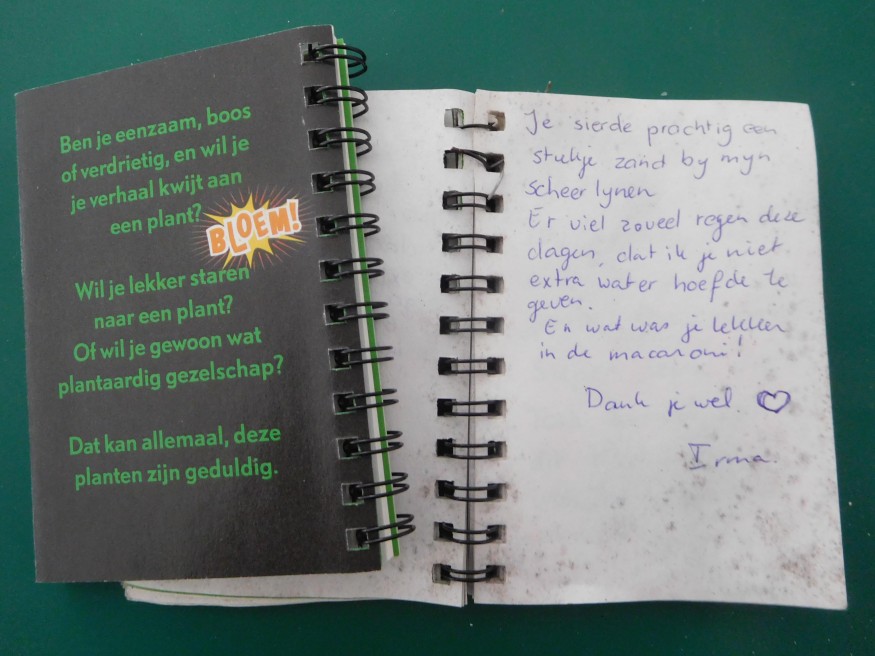 Ben je eenzaam, boos
of verdrietig, en wil je
je verhaal kwijt aan
een plant?
BLOEM!
Wil je lekker staren
naar een plant?
Of wil je gewoon wat
plantaardig gezelschap?
Dat kan allemaal, deze
planten zijn geduldig.
Je sierde prachtig een
stukje zand by myn
scheerlynen
Er viel zoveel regen deze
dagen, dat ik je niet
extra water hoefde te
geven.
En wat was je lekker
in de macaroni!
Dank je wel. ♡
Irma.